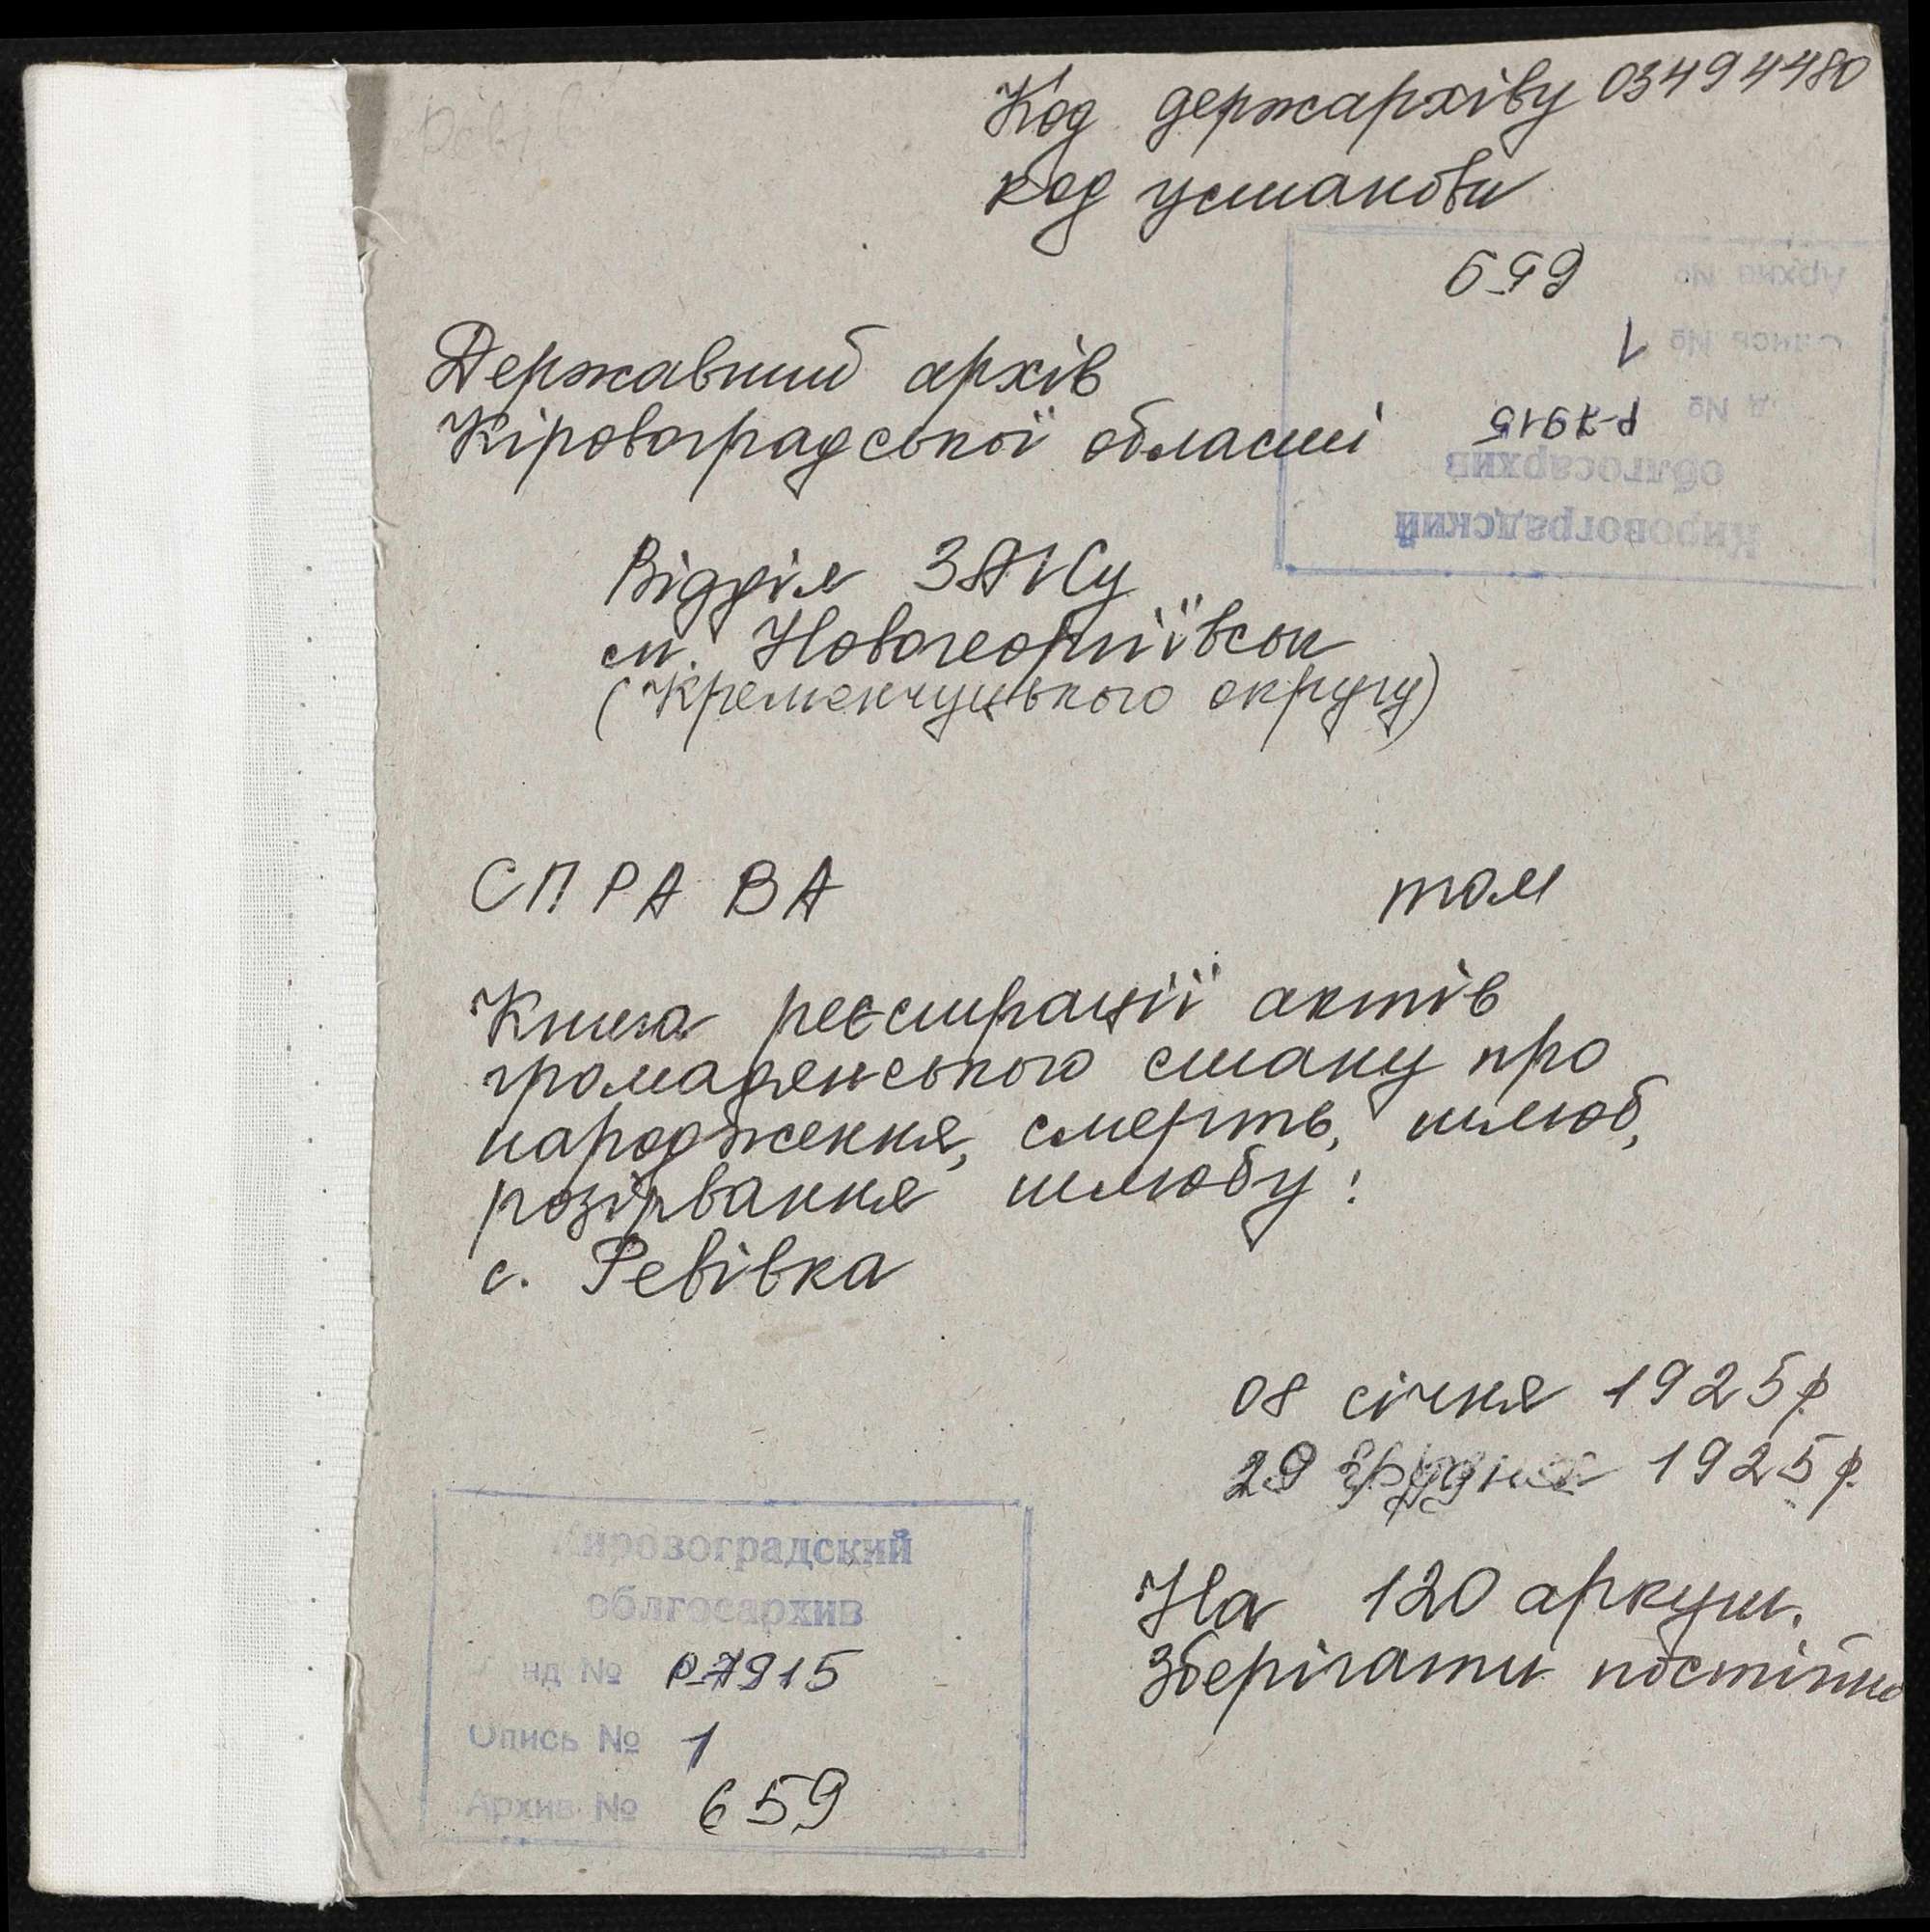 Код держархіву 03494480
код установи
659
1
Р-7915
облгосархив
Кировоградский
Державний архів
Кіровоградської області
Відділ ЗАГСу
м. Новогеоргіївськ
(Кременчуцького округу)
СПРАВА том
Книга реєстрації актів
громадянського стану про
народження, смерть, шлюб,
розірвання шлюбу:
с. Ревівка
08 січня 1925р
29 грудня 1925р.
На 120 аркуш.
Зберігати постійно
Кировоградский
облгосархив
нд № Р-7915
Опись № 1
Архив № 659